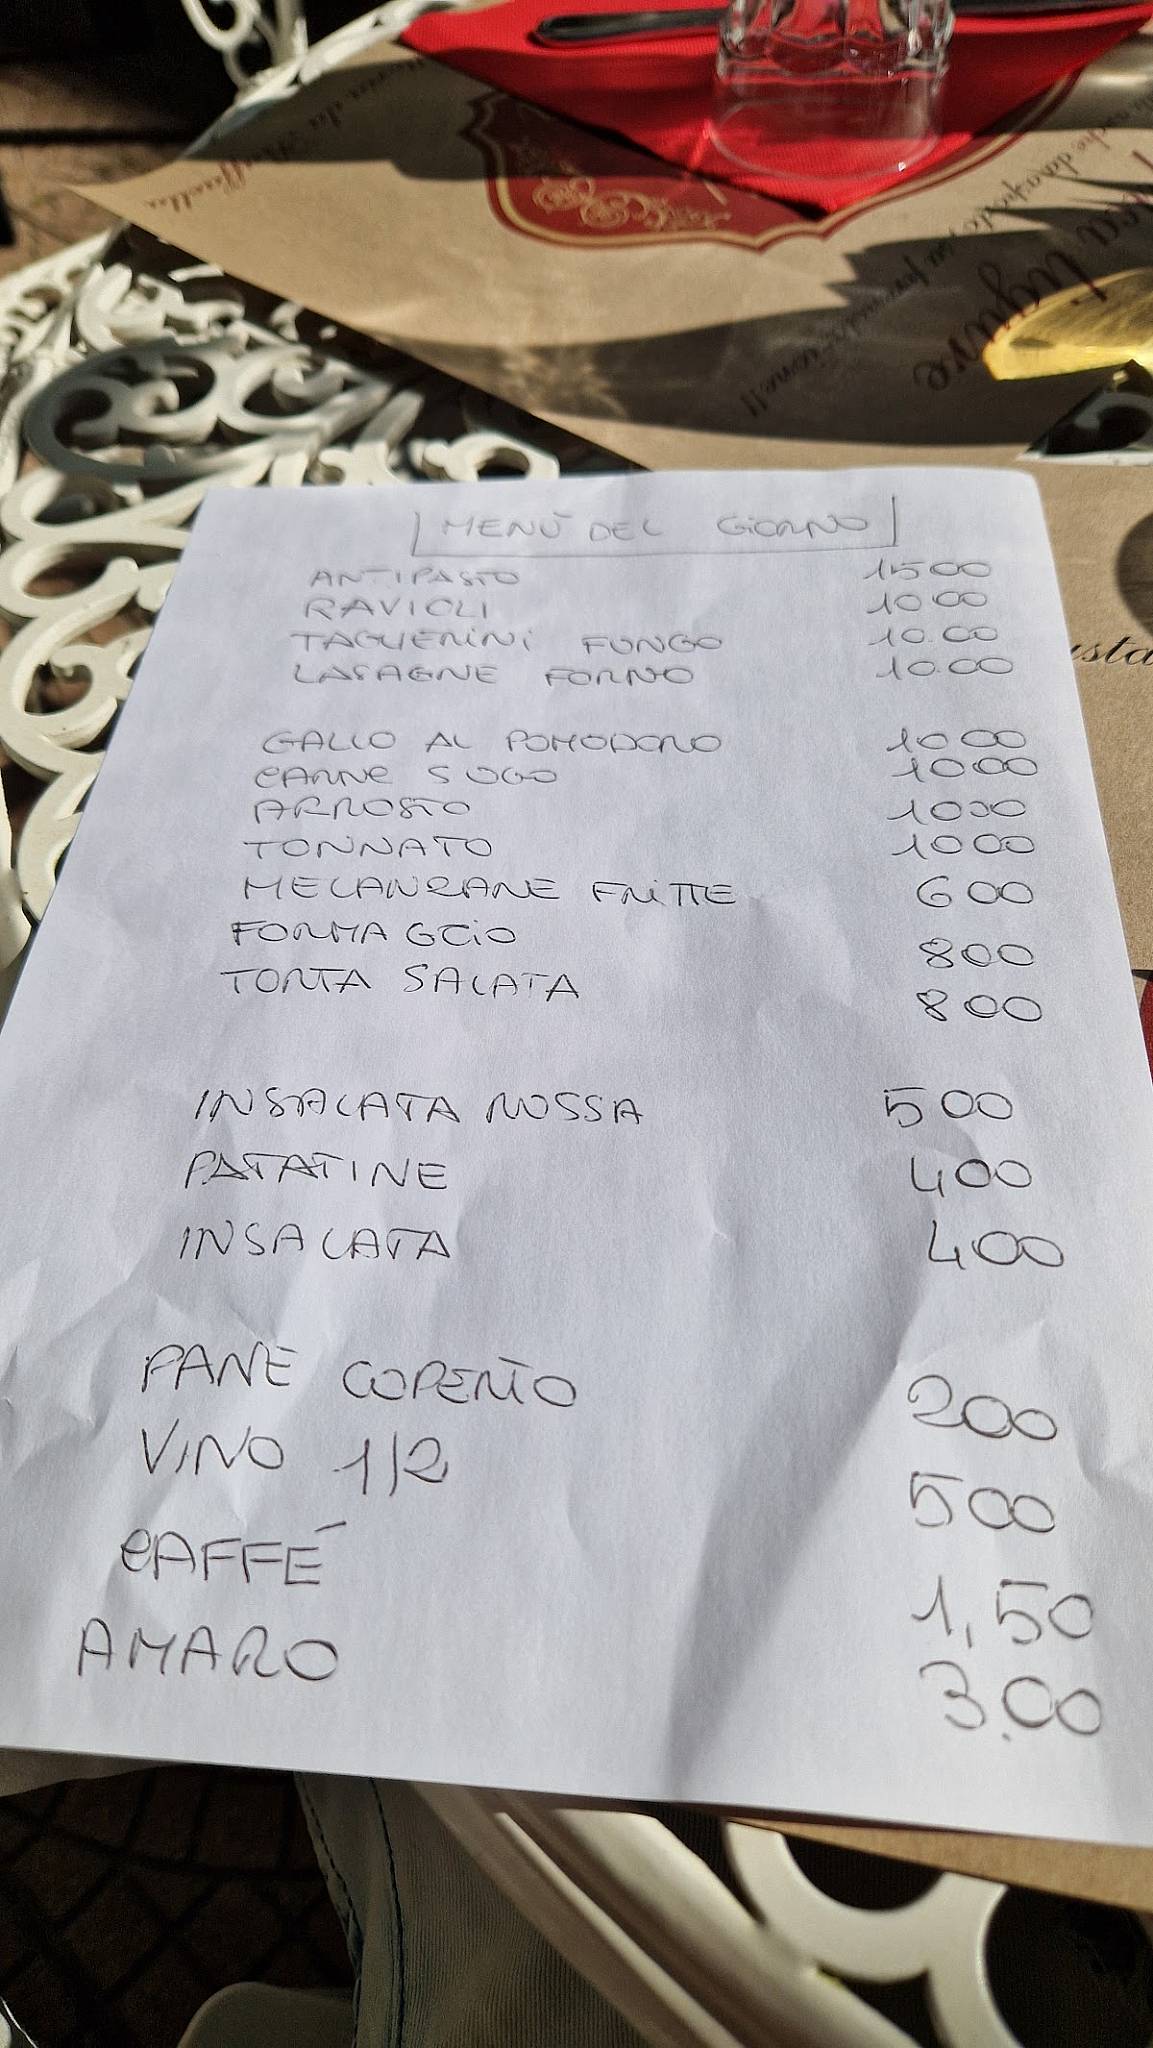 MENÙ DEL GIORNO
ANTIPASTO 1500
RAVIOLI 1000
TAGLIERINI FUNGO 10.00
LASAGNE FORNO 10.00
GALLO AL POMODORO 1000
CARNE SUGO 1000
ARROSTO 1000
TONNATO 1000
MELANZANE FRITTE 600
FORMAGGIO 800
TORTA SALATA 800
INSALATA ROSSA 500
PATATINE 400
INSALATA 400
PANE COPERTO 200
VINO 1/2 500
CAFFÉ 1,50
AMARO 3.00